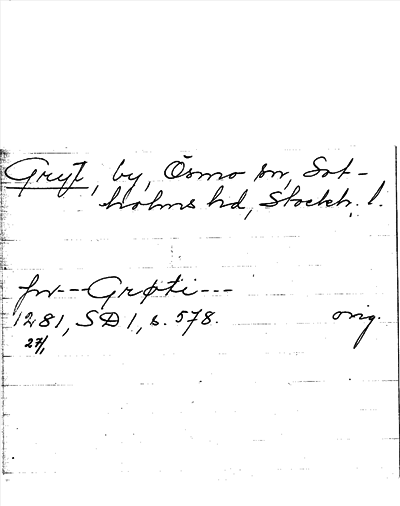 Gryt, by, Ösmo sn, Sot-
holms hd, Stockh. l.
fw---Grøti---
1281, SD 1, s. 578. orig.
27/1